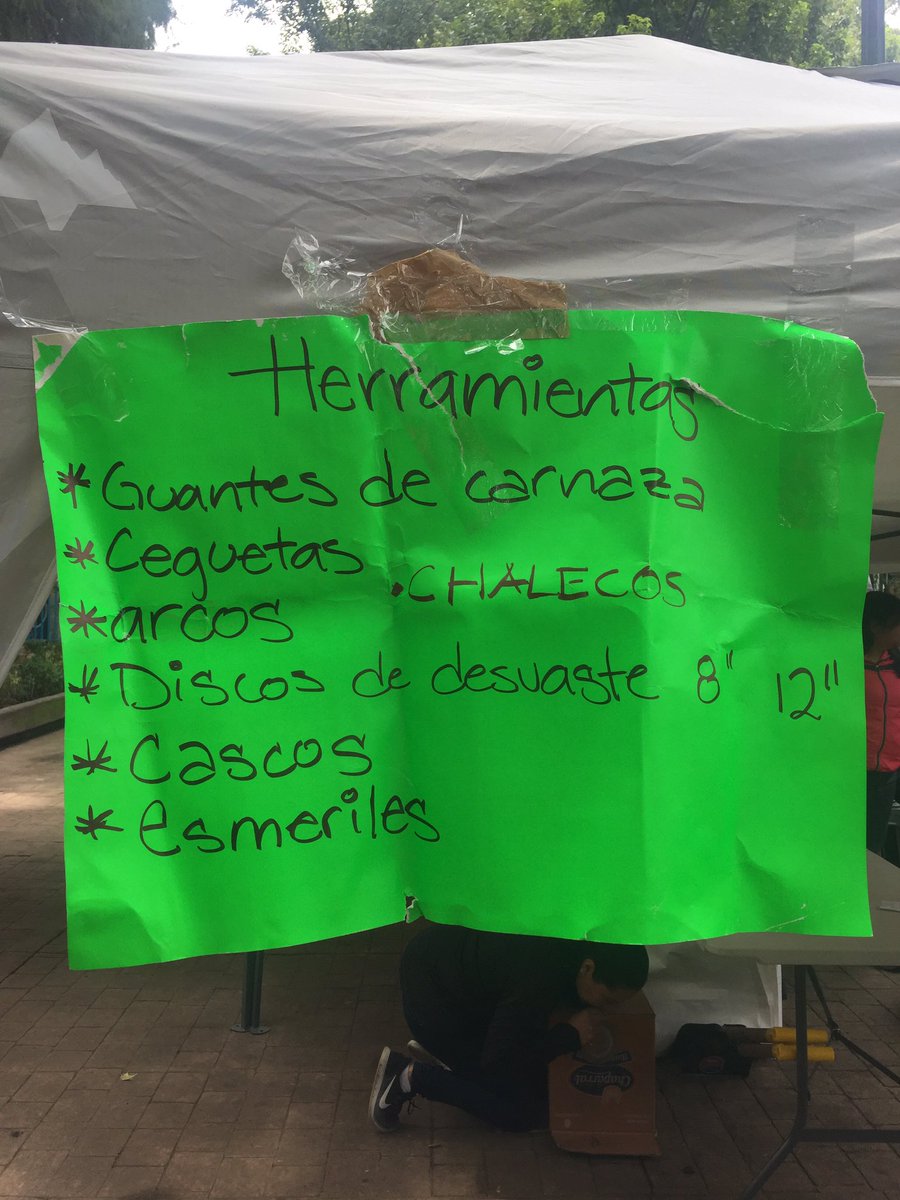 Herramientas
* Guantes de carnaza
* Ceguetas
• CHALECOS
* arcos
* Discos de desvaste 8" 12"
* Cascos
* esmeriles
Chaparral